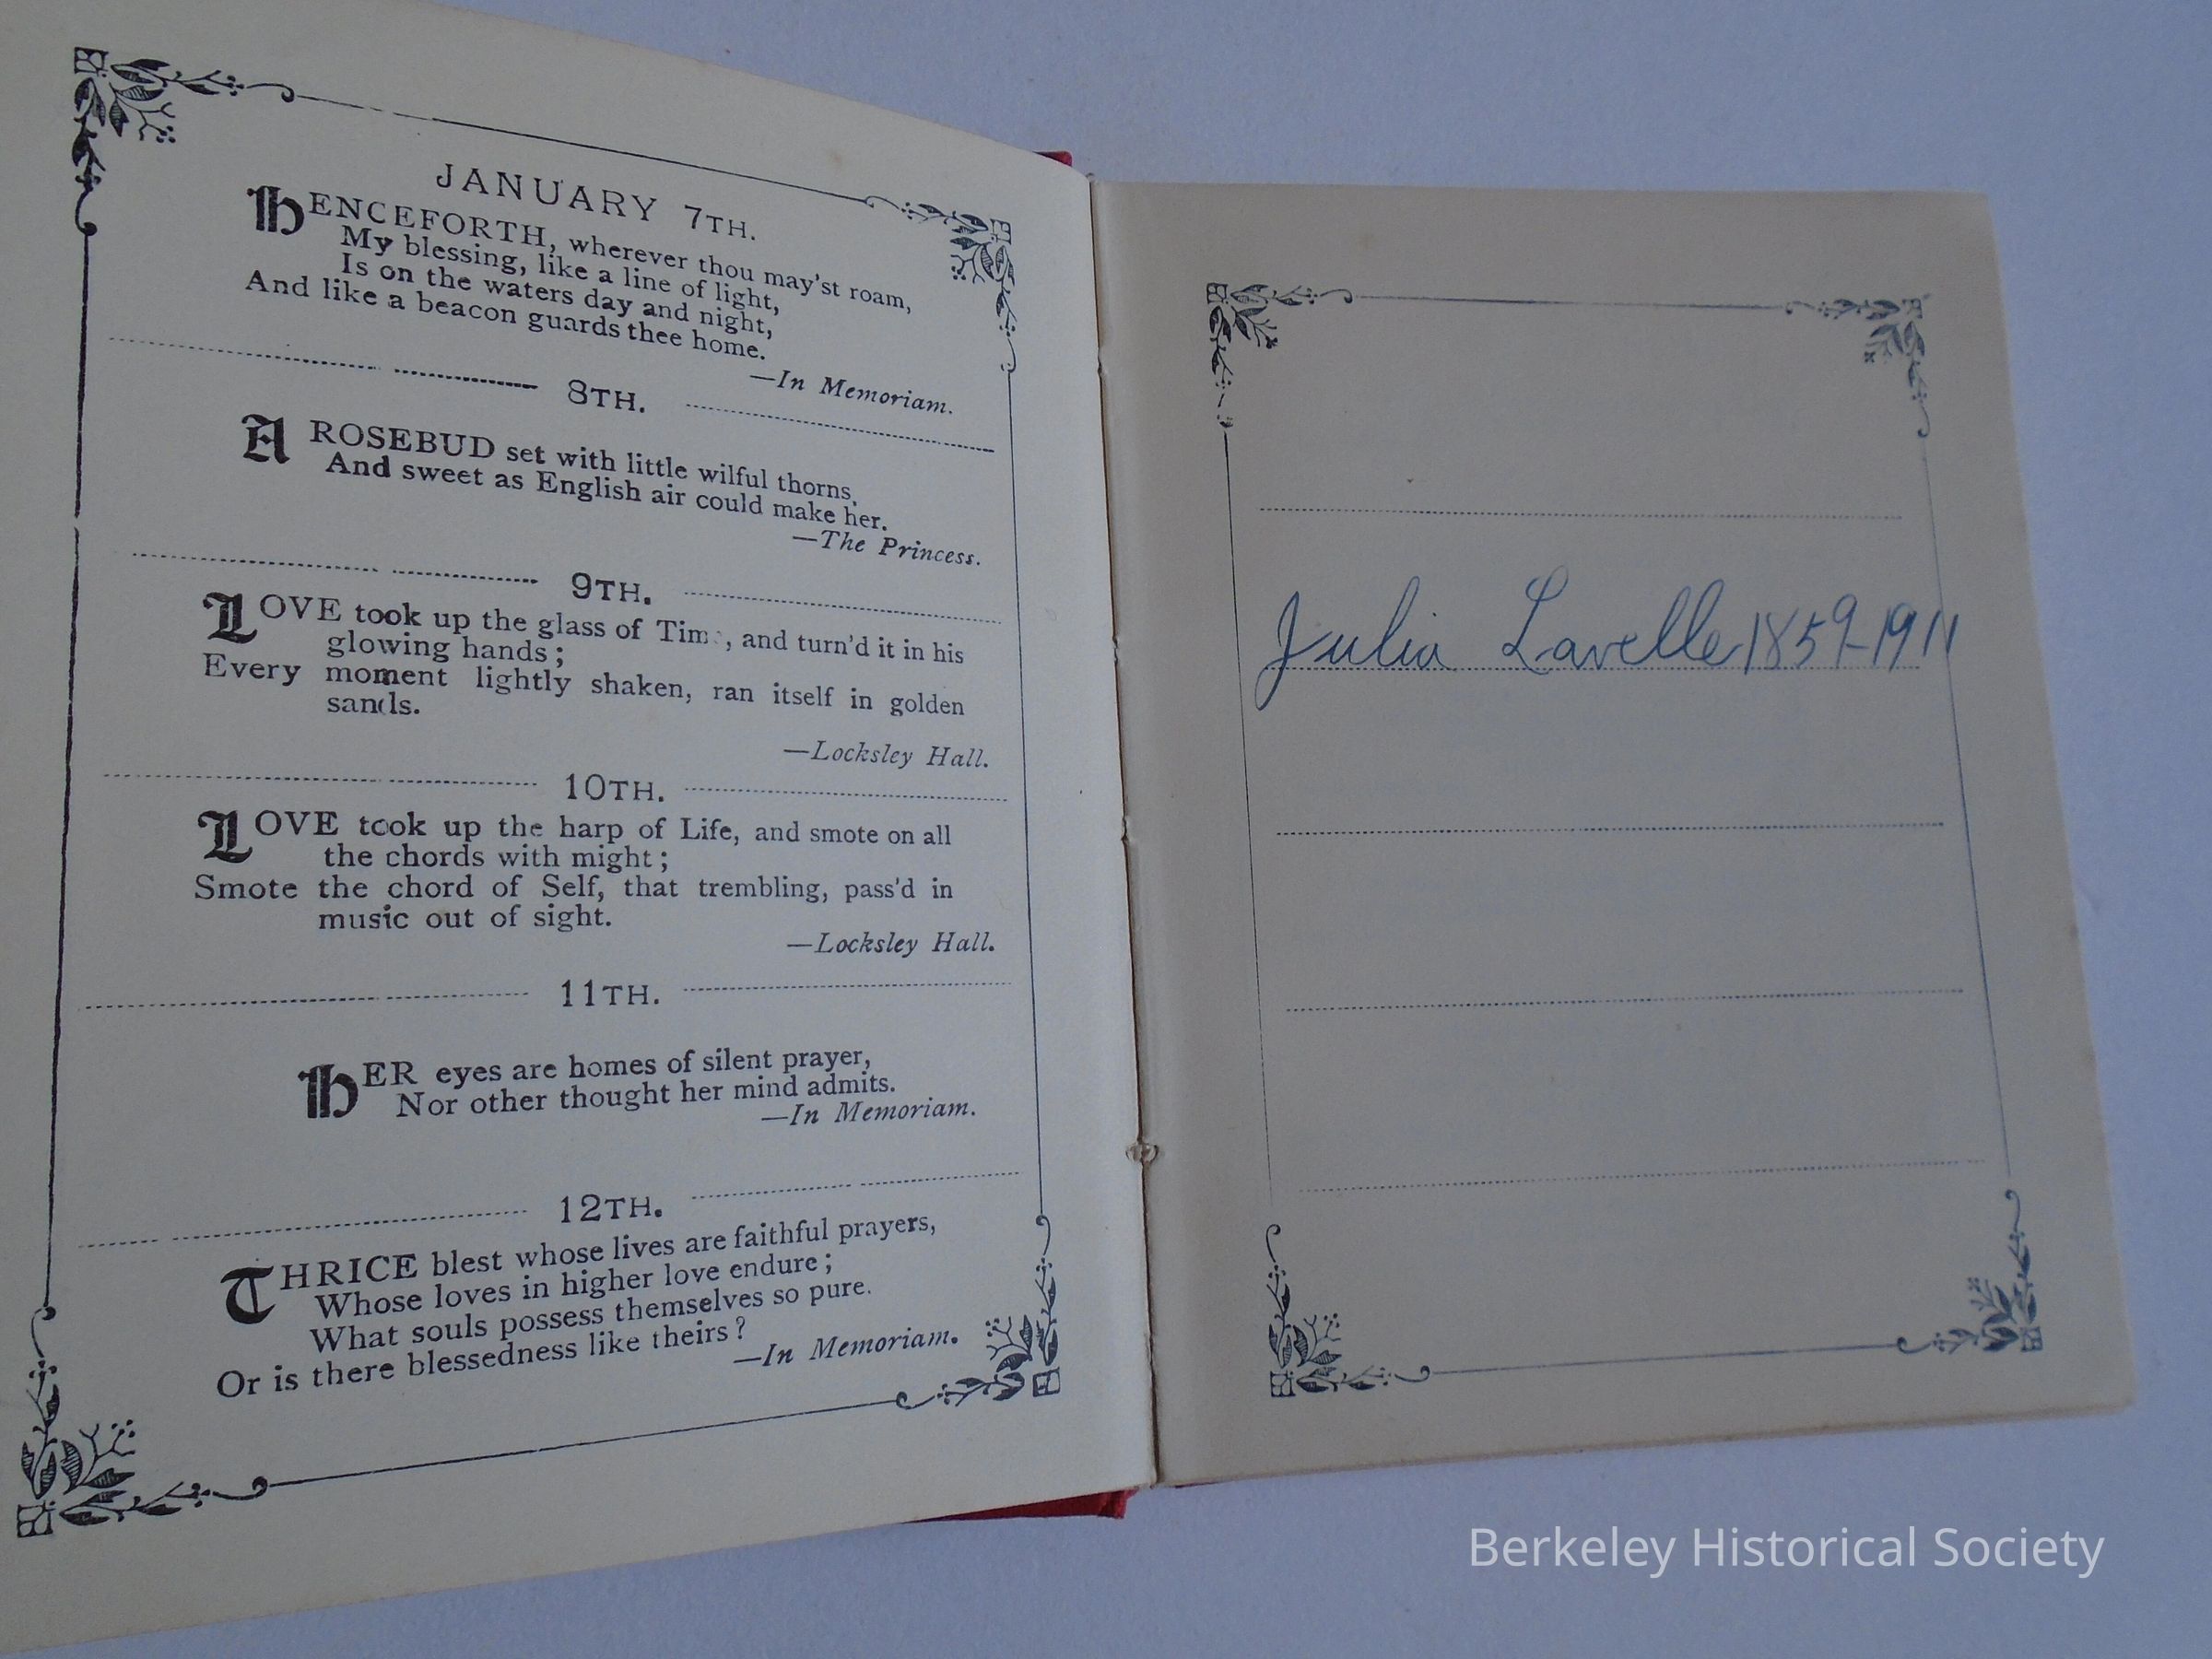 JANUARY 7TH.
HENCEFORTH, wherever thou may'st roam,
My blessing, like a line of light,
Is on the waters day and night,
And like a beacon guards thee home.
—In Memoriam.
8TH.
A ROSEBUD set with little wilful thorns,
And sweet as English air could make her.
—The Princess.
9TH.
LOVE took up the glass of Time, and turn'd it in his
glowing hands;
Every moment lightly shaken, ran itself in golden
sands.
—Locksley Hall.
10TH.
LOVE took up the harp of Life, and smote on all
the chords with might;
Smote the chord of Self, that trembling, pass'd in
music out of sight.
—Locksley Hall.
11TH.
HER eyes are homes of silent prayer,
Nor other thought her mind admits.
—In Memoriam.
12TH.
THRICE blest whose lives are faithful prayers,
Whose loves in higher love endure;
What souls possess themselves so pure.
Or is there blessedness like theirs?
—In Memoriam.
Julia Lavelle 1859-1911
Berkeley Historical Society